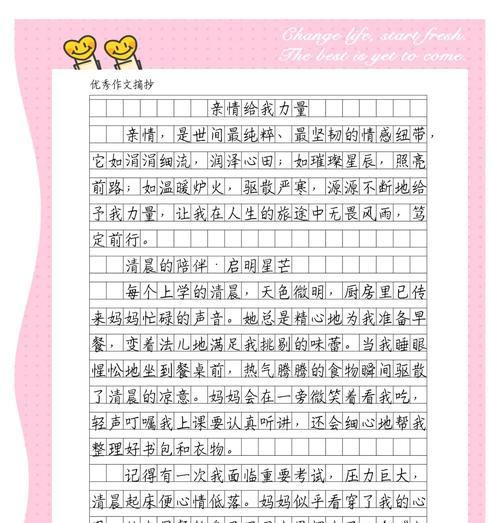 Change life, start fresh.
The best is yet to come.
优秀作文摘抄
亲情给我力量
亲情，是世间最纯粹、最坚韧的情感纽带，
它如涓涓细流，润泽心田；如璀璨星辰，照亮
前路；如温暖炉火，驱散严寒，源源不断地给
予我力量，让我在人生的旅途中无畏风雨，笃
定前行。
清晨的陪伴·启明星芒
每个上学的清晨，天色微明，厨房里已传
来妈妈忙碌的声音。她总是精心地为我准备早
餐，变着法儿地满足我挑剔的味蕾。当我睡眼
惺忪地坐到餐桌前，热气腾腾的食物瞬间驱散
了清晨的凉意。妈妈会在一旁微笑着看我吃，
轻声叮嘱我上课要认真听讲，还会细心地帮我
整理好书包和衣物。
记得有一次我面临重要考试，压力巨大，
清晨起床便心情低落。妈妈似乎看穿了我的心